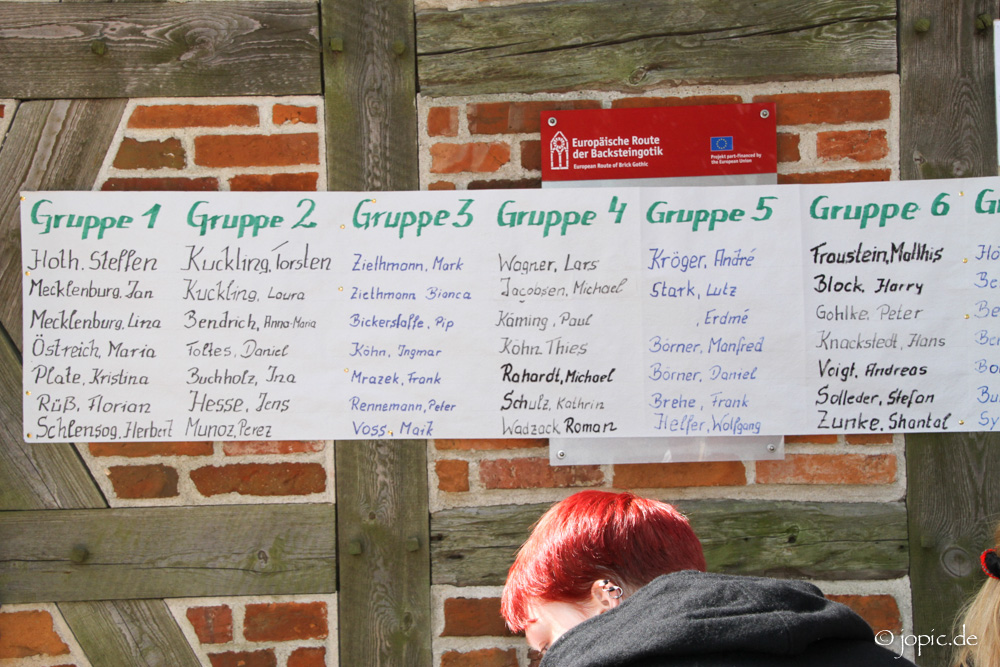 Europäische Route
der Backsteingotik
European Route of Brick Gothic
Projekt part-financed
by the European Union
Gruppe 1
Hoth, Steffen
Mecklenburg, Jan
Mecklenburg, Lina
Östreich, Maria
Plate, Kristina
Rüß, Florian
Schlensog, Herbert
Gruppe 2
Kuckling, Torsten
Kuckling, Laura
Bendrich, Anna-Maria
Foltes, Daniel
Buchholz, Ina
Hesse, Jens
Munoz, Perez
Gruppe 3
Ziethmann, Mark
Ziethmann Bianca
Bickerstaffe, Pip
Köhn, Ingmar
Mrazek, Frank
Rennemann, Peter
Voss, Maik
Gruppe 4
Wagner, Lars
Jacobsen, Michael
Käming, Paul
Köhn Thies
Rahardt, Michael
Schulz, Kathrin
Wadzack, Roman
Gruppe 5
Kröger, André
Stark, Lutz
, Erdmé
Börner, Manfred
Börner, Daniel
Brehe, Frank
Helfer, Wolfgang
Gruppe 6
Traustein, Matthis
Block, Harry
Gohlke, Peter
Knackstedt, Hans
Voigt, Andreas
Solleder, Stefan
Zunke, Shantal
© jopic.de